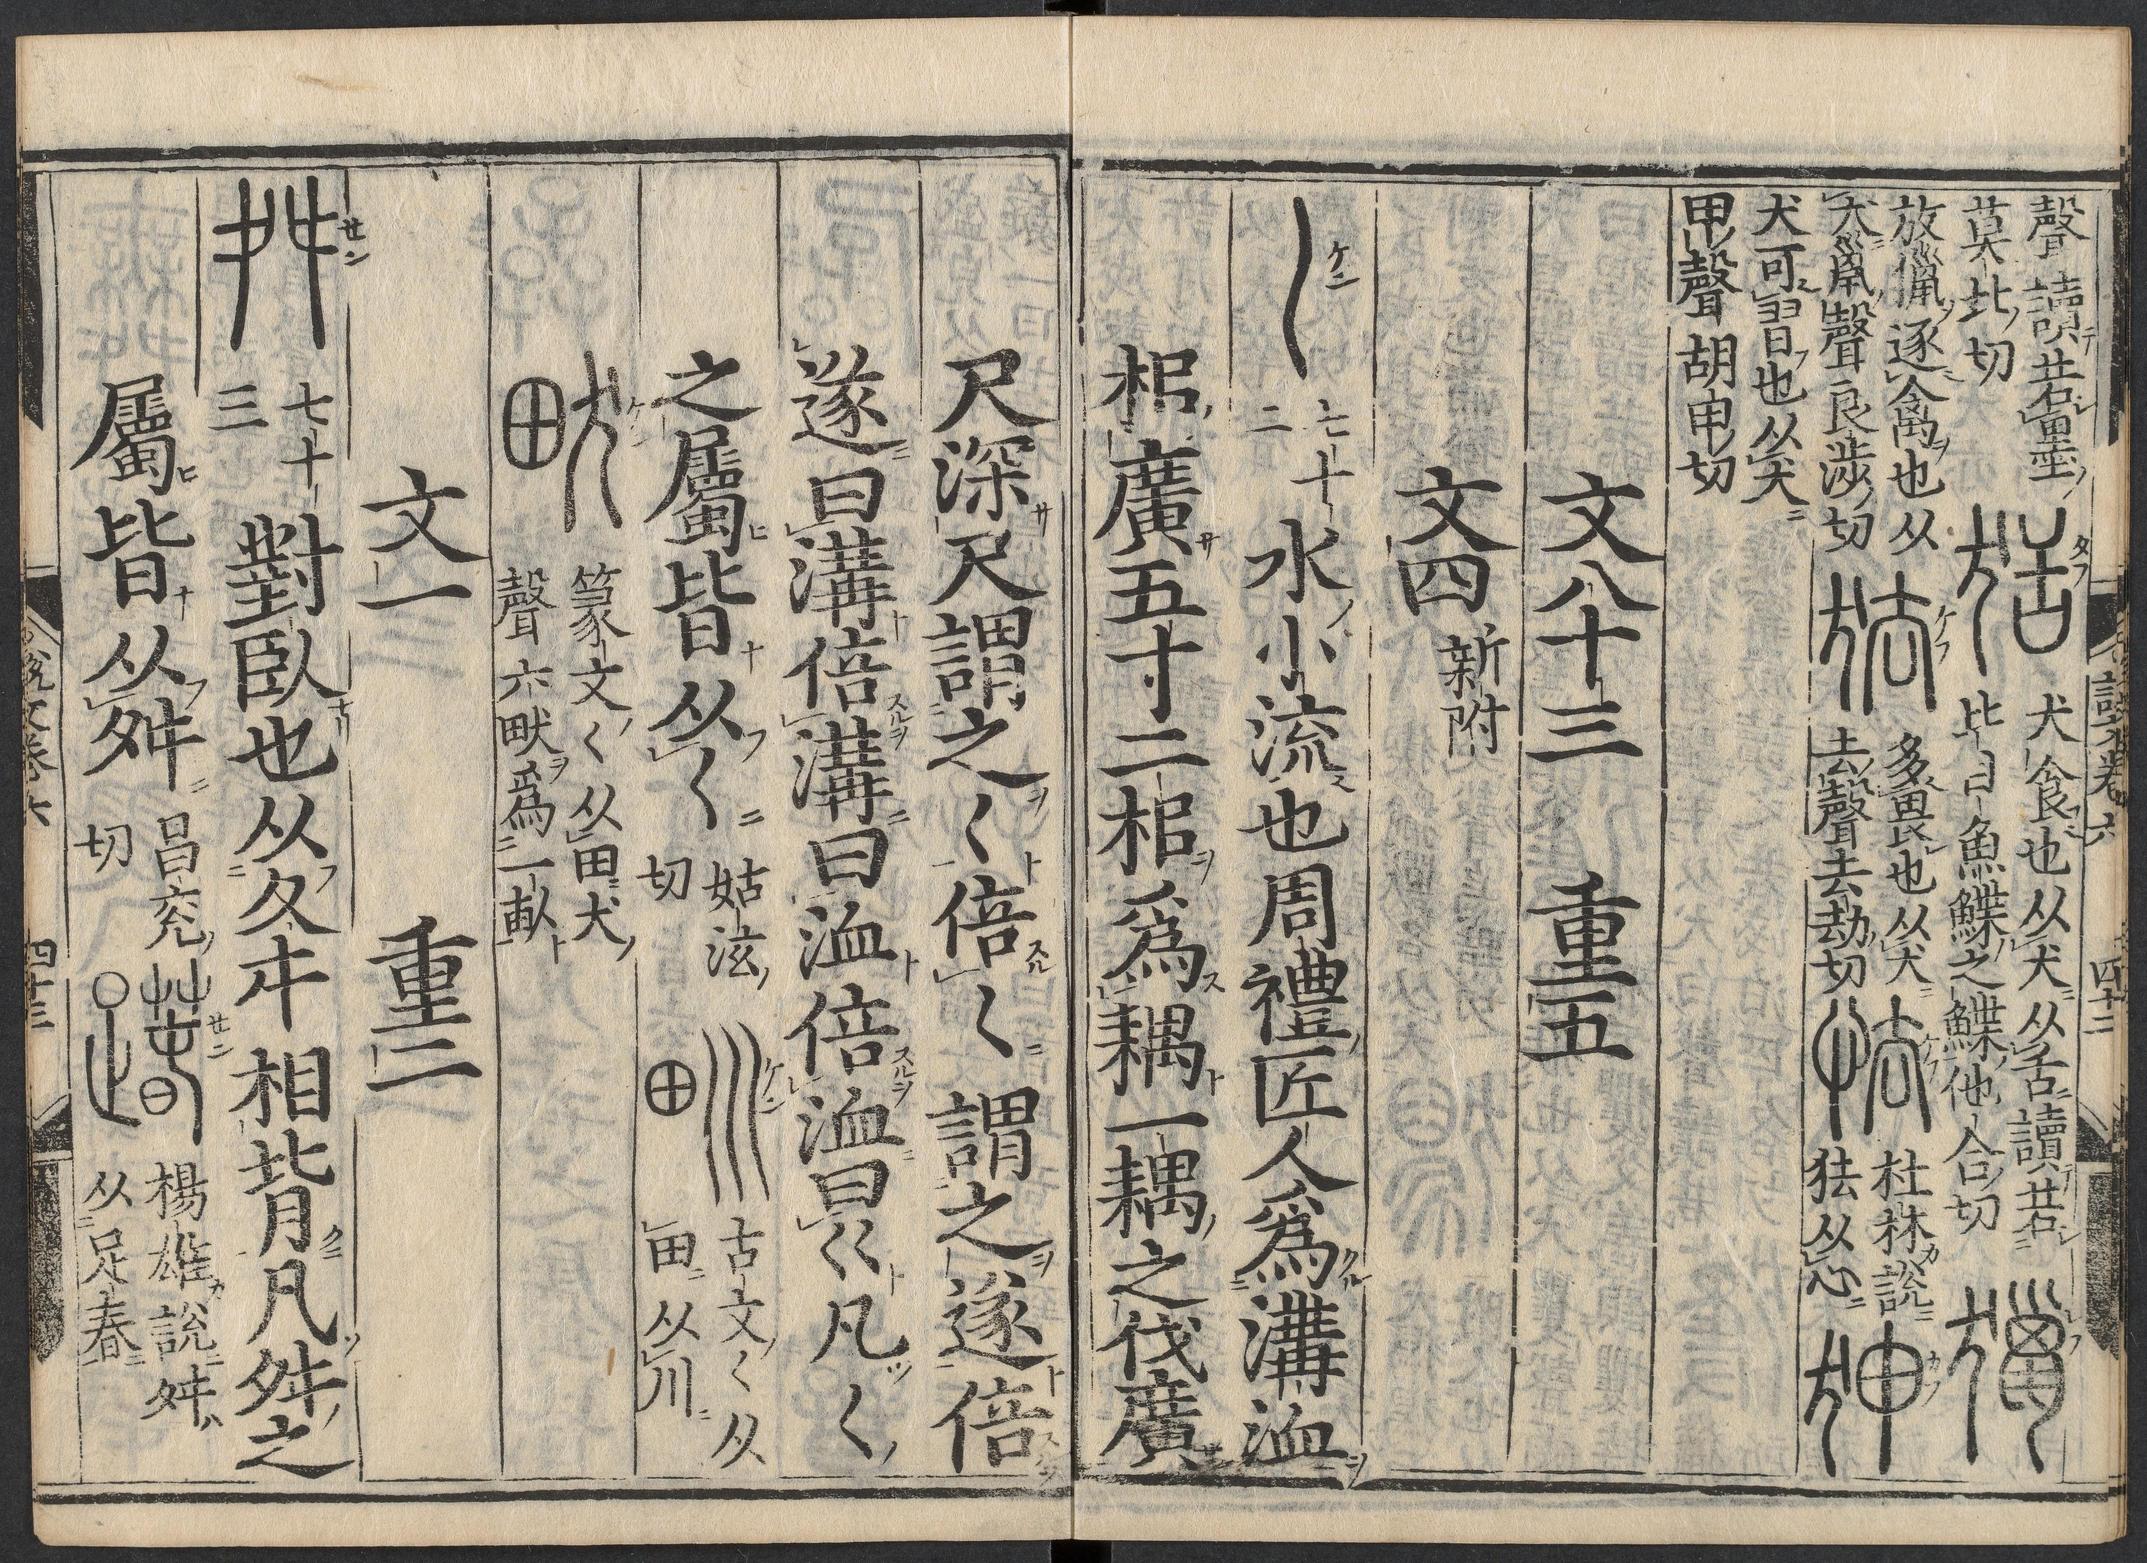 聲讀若畫
莫北切
𤝰犬食也从犬从舌讀若
比目魚鰈之鰈他合切
獵
放獵逐禽也从
犬巤聲良涉切
㹤多畏也从犬
去聲去劫切
怯杜林說
㹤从心
狎
犬可習也从犬
甲聲胡甲切
文八十三 重五
文四新附
𡿨七十二水小流也周禮匠人爲溝洫
枱廣五寸二枱爲耦一耦之伐廣
尺深尺謂之𡿨倍𡿨謂之遂倍
遂曰溝倍溝曰洫倍洫曰巜凡𡿨
之屬皆从𡿨姑泫切
甽古文𡿨从田从川
畎篆文𡿨从田犬聲六畎爲一畝
文一 重二
舛七十三對臥也从夊㐄相背凡舛之
屬皆从舛昌兖切
踳楊雄說舛从足春
說文卷六 四十二
說文卷六 四十三